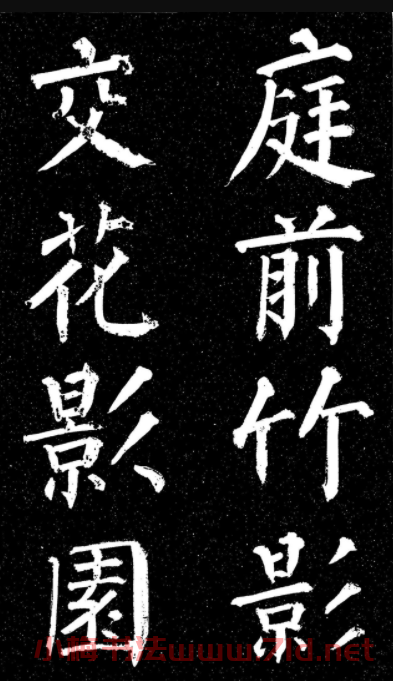 庭前竹影
交花影園
小梅书法www.7ld.net